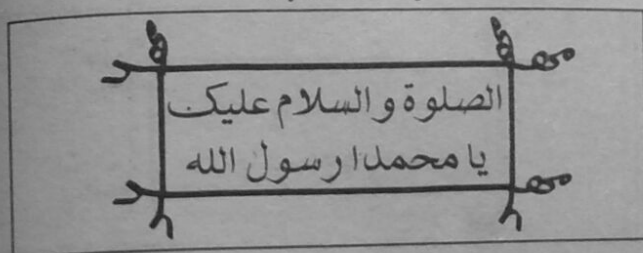 الصلوة والسلام عليك
يا محمدا رسول الله